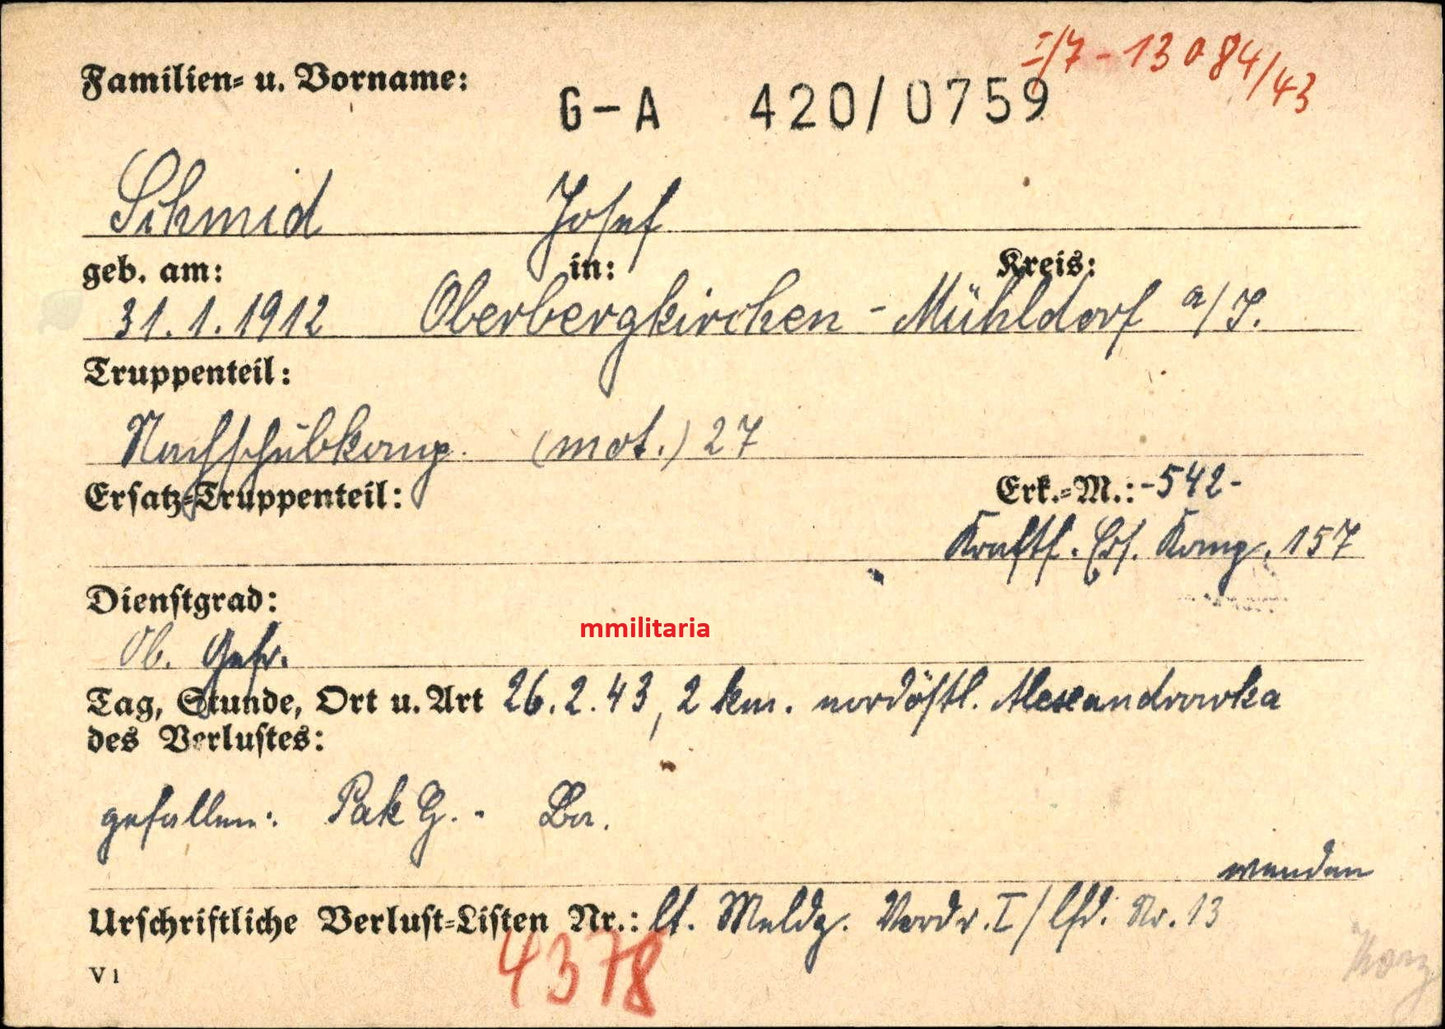 I/7 - 13 084/43
Familien- u. Vorname:
G-A 420/0759
Schmid Josef
geb. am: in: Kreis:
31.1.1912 Oberbergkirchen - Mühldorf a/I.
Truppenteil:
Nachschubkomp. (mot.) 27
Ersatz-Truppenteil: Erk.-M.: -542-
Kraftf. Ers. Komp. 157
Dienstgrad:
Ob. Gefr.
mmilitaria
Tag, Stunde, Ort u. Art 26.2.43, 2 km. nordöstl. Alexandrowka
des Verlustes:
gefallen: Pak G. -
wenden
Urschriftliche Verlust-Listen Nr.: lt. Meldg. Vordr. I / lfd. Nr. 13
4378
V 1